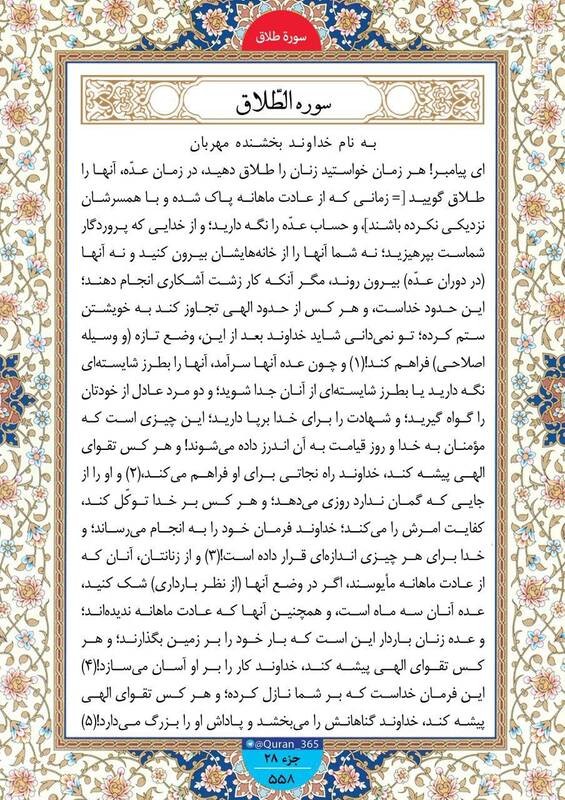 سورة طلاق
سوره الطّلاق
به نام خداوند بخشنده مهربان
ای پیامبر! هر زمان خواستید زنان را طلاق دهید، در زمان عدّه، آنها را
طلاق گویید [= زمانی که از عادت ماهانه پاک شده و با همسرشان
نزدیکی نکرده باشند]، و حساب عدّه را نگه دارید؛ و از خدایی که پروردگار
شماست بپرهیزید؛ نه شما آنها را از خانه‌هایشان بیرون کنید و نه آنها
(در دوران عدّه) بیرون روند، مگر آنکه کار زشت آشکاری انجام دهند؛
این حدود خداست، و هر کس از حدود الهی تجاوز کند به خویشتن
ستم کرده؛ تو نمی‌دانی شاید خداوند بعد از این، وضع تازه (و وسیله
اصلاحی) فراهم کند!(۱) و چون عده آنها سرآمد، آنها را بطرز شایسته‌ای
نگه دارید یا بطرز شایسته‌ای از آنان جدا شوید؛ و دو مرد عادل از خودتان
را گواه گیرید؛ و شهادت را برای خدا برپا دارید؛ این چیزی است که
مؤمنان به خدا و روز قیامت به آن اندرز داده می‌شوند! و هر کس تقوای
الهی پیشه کند، خداوند راه نجاتی برای او فراهم می‌کند،(۲) و او را از
جایی که گمان ندارد روزی می‌دهد؛ و هر کس بر خدا توکّل کند،
کفایت امرش را می‌کند؛ خداوند فرمان خود را به انجام می‌رساند؛ و
خدا برای هر چیزی اندازه‌ای قرار داده است!(۳) و از زنانتان، آنان که
از عادت ماهانه مأیوسند، اگر در وضع آنها (از نظر بارداری) شک کنید،
عده آنان سه ماه است، و همچنین آنها که عادت ماهانه ندیده‌اند؛
و عده زنان باردار این است که بار خود را بر زمین بگذارند؛ و هر
کس تقوای الهی پیشه کند، خداوند کار را بر او آسان می‌سازد!(۴)
این فرمان خداست که بر شما نازل کرده؛ و هر کس تقوای الهی
پیشه کند، خداوند گناهانش را می‌بخشد و پاداش او را بزرگ می‌دارد!(۵)
@Quran_365
جزء ۲۸
۵۵۸